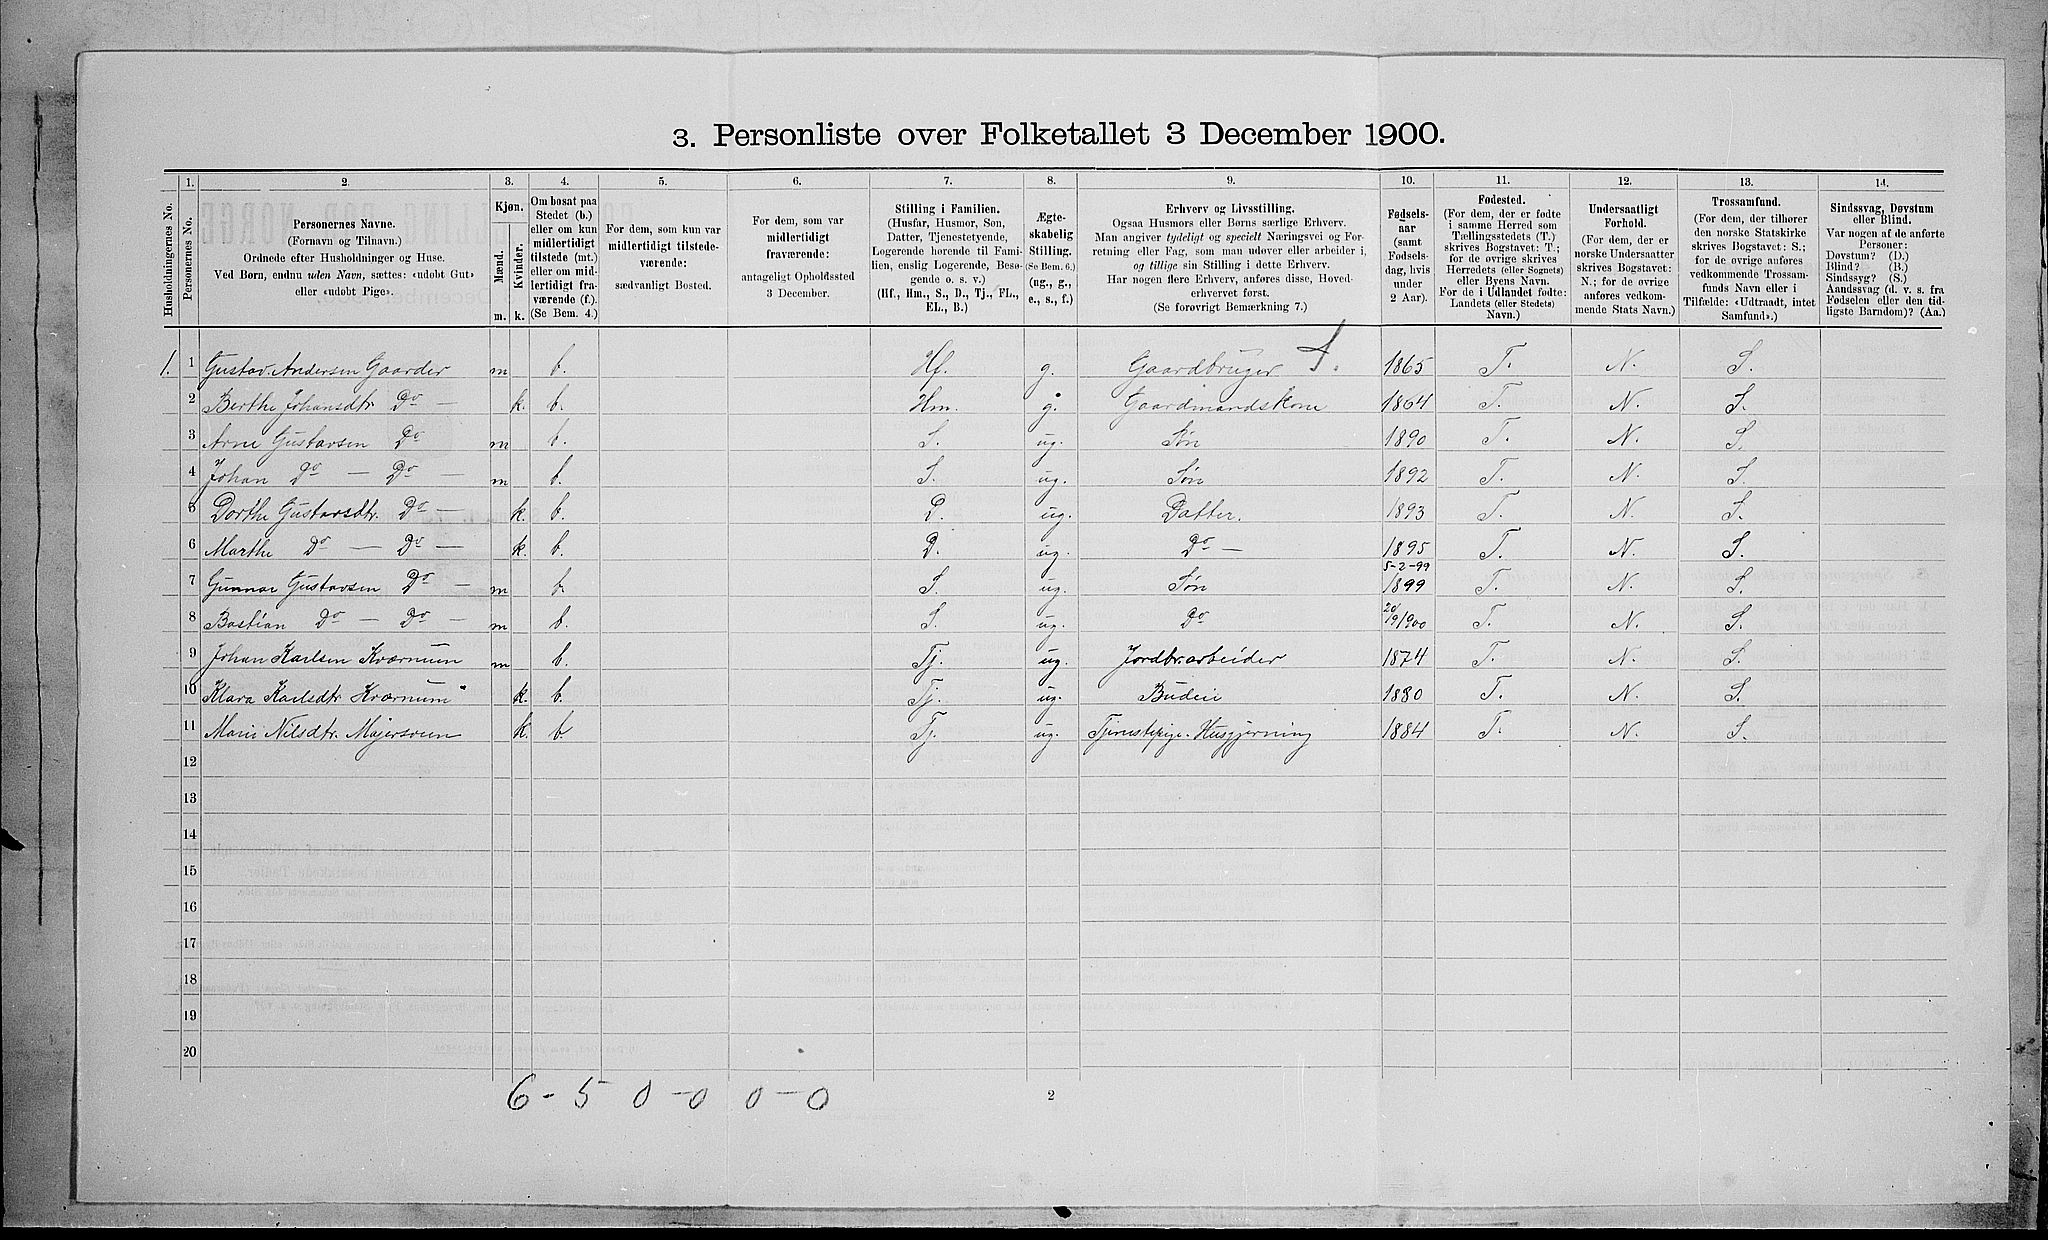 3. Personliste over Folketallet 3 December 1900.
1. 2. 3. 4. 5. 6. 7. 8. 9. 10. 11. 12. 13. 14.
Husholdningernes No.
Personernes No.
Personernes Navne.
(Fornavn og Tilnavn.)
Ordnede efter Husholdninger og Huse.
Ved Børn, endnu uden Navn, sættes: «udobt Gut»
eller «udobt Pige».
Kjøn.
Mænd.
Kvinder.
m. k.
Om bosat paa
Stedet (b.)
eller om kun
midlertidigt
tilstede (mt.)
eller om mid-
lertidigt fra-
værende (f.).
(Se Bem. 4.)
For dem, som kun var
midlertidigt tilstede-
værende:
sædvanligt Bosted.
For dem, som var
midlertidigt
fraværende:
antageligt Opholdssted
3 December.
Stilling i Familien.
(Husfar, Husmor, Søn,
Datter, Tjenestetyende,
Logerende hørende til Fami-
lien, enslig Logerende, Besø-
gende o. s. v.)
(Hf., Hm., S., D., Tj., FL.,
EL., B.)
Ægte-
skabelig
Stilling.
(Se Bem. 6.)
(ug., g.,
e., s., f.)
Erhverv og Livsstilling.
Ogsaa Husmors eller Børns særlige Erhverv.
Man angiver tydeligt og specielt Næringsvei og For-
retning eller Fag, som man udøver eller arbeider i,
og tillige sin Stilling i dette Erhverv.
Har nogen flere Erhverv, anføres disse, Hoved-
erhvervet først.
(Se forøvrigt Bemærkning 7.)
Fødsels-
aar
(samt
Fødsels-
dag, hvis
under
2 Aar).
Fødested.
(For dem, der er fødte
i samme Herred som
Tællingsstedets (T.)
skrives Bogstavet: T.;
for de øvrige skrives
Herredets (eller Sognets)
eller Byens Navn.
For de i Udlandet fødte:
Landets (eller Stedets)
Navn.)
Undersaatligt
Forhold.
(For dem, der er
norske Undersaatter
skrives Bogstavet:
N.; for de øvrige
anføres vedkom-
mende Stats Navn.)
Trossamfund.
(For dem, der tilhører
den norske Statskirke
skrives Bogstavet: S.;
for de øvrige anføres
vedkommende Trossam-
funds Navn eller i
Tilfælde: «Udtraadt, intet
Samfund».)
Sindssvag, Døvstum
eller Blind.
Var nogen af de anførte
Personer:
Døvstum? (D.)
Blind? (B.)
Sindssyg? (S.)
Aandssvag (d. v. s. fra
Fødselen eller den tid-
ligste Barndom)? (Aa.)
1. 1 Gustav Andersen Gaarder m b. Hf. g. Gaardbruger 1865 T. N. S.
2 Berthe Johansdtr Do — k. b. Hm. g. Gaardmandskone 1864 T. N. S.
3 Arne Gustavsen Do m b. S. ug. Søn 1890 T. N. S.
4 Johan Do — Do — m b. S. ug. Søn 1892 T. N. S.
5 Dorthe Gustavsdtr. Do — k. b. D. ug. Datter. 1893 T. N. S.
6 Marthe Do — Do — k. b. D. ug. Do — 1895 T. N. S.
7 Gunnar Gustavsen Do — m b. S. ug. Søn 5-2-99 1899 T. N. S.
8 Bastian Do — Do — m b. S. ug. Do 1900 T. N. S.
9 Johan Karlsen Kværnum m b. Tj. ug. Jordbr.arbeider 1874 T. N. S.
10 Klara Karlsdtr Kværnum k. b. Tj. ug. Budeie 1880 T. N. S.
11 Marie Nilsdtr. Majersveen k. b. Tj. ug. Tjenestepige. Husgjerning 1884 T. N. S.
12
13
14
15
16
17
18
19
20
6 - 5 0 - 0 0 - 0
2